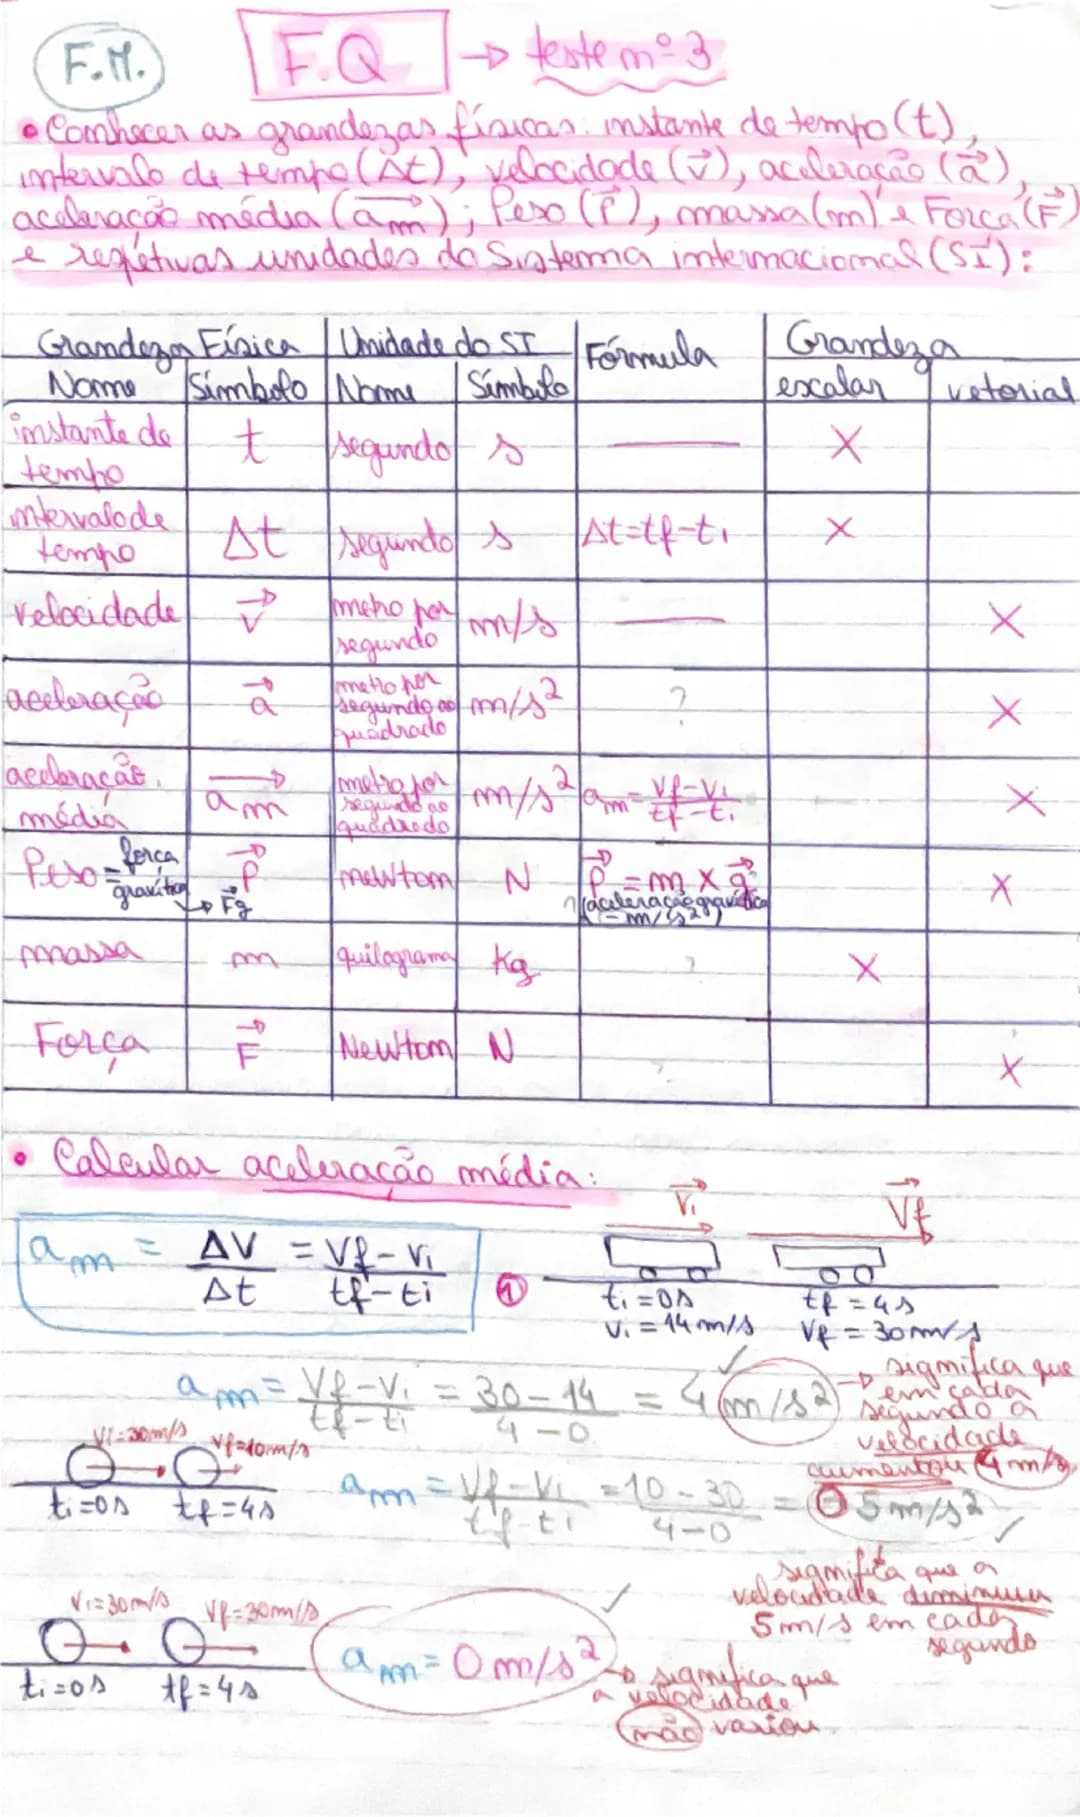 F.M.
F.Q → teste nº3
• Conhecer as grandezas físicas: instante de tempo (t),
intervalo de tempo (Δt), velocidade (v⃗), aceleração (a⃗),
aceleração média (a⃗m); Peso (P⃗), massa (m) e Força (F⃗)
e respetivas unidades do Sistema internacional (SI):
Grandeza Física | Unidade do SI | Fórmula | Grandeza
Nome | Símbolo | Nome | Símbolo | escalar | vetorial
instante de tempo | t | segundo | s | — | X
intervalo de tempo | Δt | segundo | s | Δt=tf-ti | X
velocidade | v⃗ | metro por segundo | m/s | — | X
aceleração | a⃗ | metro por segundo ao quadrado | m/s² | ? | X
aceleração média | a⃗m | metro por segundo ao quadrado | m/s² | am = Vf-Vi / tf-ti | X
Peso = força gravítica | P⃗ → F⃗g | newton | N | P⃗ = m x g⃗ (aceleração gravítica = m/s²) | X
massa | m | quilograma | Kg | ? | X
Força | F⃗ | Newton | N | ? | X
• Calcular aceleração média:
am = ΔV / Δt = Vf-Vi / tf-ti
①
V⃗i V⃗f
ti=0s tf=4s
Vi=14m/s Vf=30m/s
am = Vf-Vi / tf-ti = 30-14 / 4-0 = 4 m/s² ✓ → significa que
em cada
segundo a
velocidade
aumentou 4 m/s
Vi=30m/s Vf=10m/s
ti=0s tf=4s
am = Vf-Vi / tf-ti = 10-30 / 4-0 = -5m/s² ✓
significa que a
velocidade diminuiu
5m/s em cada
segundo
Vi=30m/s Vf=30m/s
ti=0s tf=4s
am = 0m/s² ✓ → significa que
a velocidade
não variou